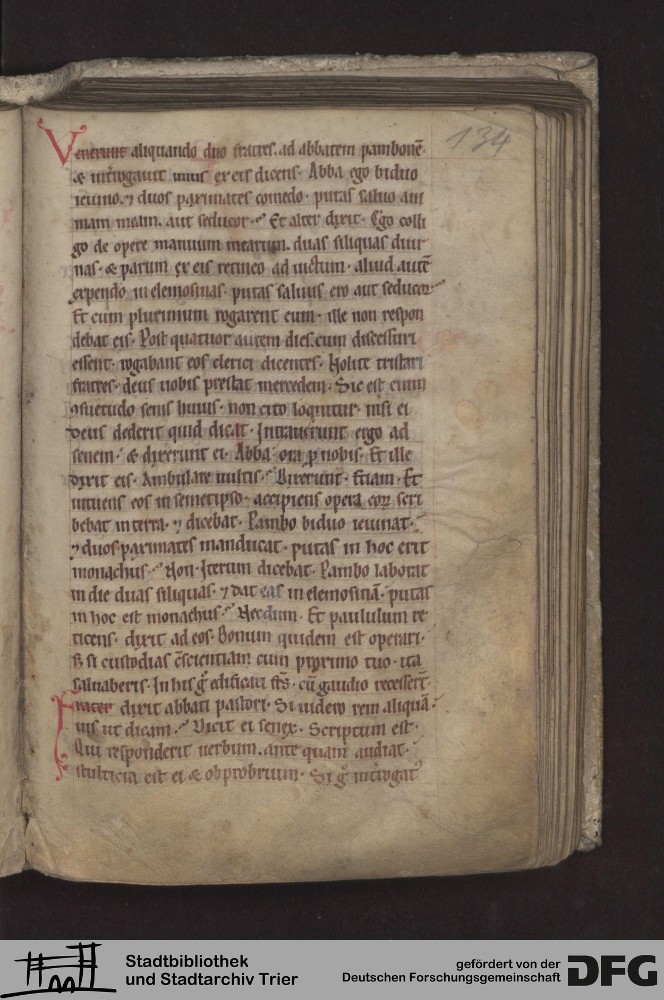 134
Venerunt aliquando duo fratres. ad abbatem pambonē·
& int̄rogauit unus ex eis dicens· Abba ego biduo
ieiuno. ⁊ duos paximates comedo· putas saluo ani
mam meam. aut seducor· Et alter dixit· Ego colli
go de opere manuum mearum. duas siliquas diur
nas· & parum ex eis retineo ad uictum· aliud autē
expendo in elemosinas· putas saluus ero aut seducor·
Et cum plurimum rogarent eum· ille non respon
debat eis· Post quatuor autem dies. cum discessuri
essent· rogabant eos clerici dicentes· Nolite tristari
fratres· deus uobis prestat mercedem· Sic est enim
ꝯsuetudo senis huius· non cito loquitur· nisi ei
deus dederit quid dicat· Intrauerunt ergo ad
senem· & dixerunt ei· Abba· ora ꝓ nobis· Et ille
dixit eis· Ambulare uultis· Dixerunt· Etiam· Et
intuens eos in semetipso· accipiens opera eoꝝ scri
bebat in terra· ⁊ dicebat· Pambo biduo ieiunat·
⁊ duos paximates manducat· putas in hoc erit
monachus· Non· Iterum dicebat· Pambo laborat
in die duas siliquas· ⁊ dat eas in elemosinā· putas
in hoc est monachus· Necdum· Et paululum re
ticens· dixit ad eos· Bonum quidem est operari·
S; si custodias c̄scientiam cum proximo tuo· ita
saluaberis· In his ḡ edificati frs̄· cū gaudio recesserт̄·
Frater dixit abbati pastori· Si uidero rem aliquā·
uis ut dicam· Dicit ei senex· Scriptum est·
Qui responderit uerbum. ante quam audiat·
stulticia est ei & obprobrium· Si ḡ int̄rogat᾽
Stadtbibliothek
und Stadtarchiv Trier
gefördert von der
Deutschen Forschungsgemeinschaft
DFG